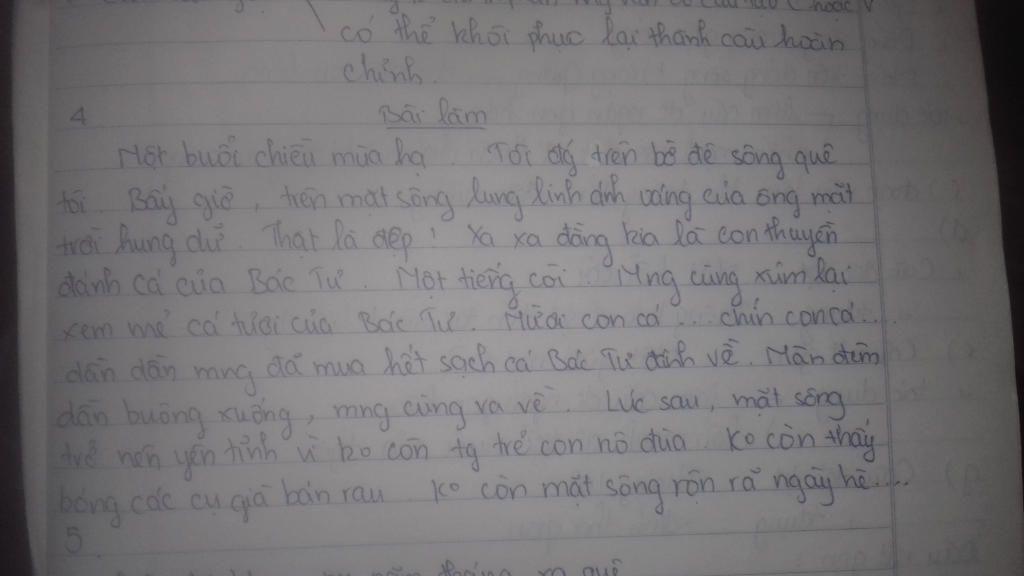 có thể khôi phục lại thành câu hoàn
chỉnh.
4 Bài làm
Một buổi chiều mùa hạ. Tôi đứg trên bờ đê sông quê
tôi. Bấy giờ, trên mặt sông lung linh ánh váng của ông mặt
trời hung dữ. Thật là đẹp! Xa xa đằng kia là con thuyền
đánh cá của Bác Tư. Một tiếng còi. Mng cùng xúm lại
xem mẻ cá tươi của Bác Tư. Mười con cá... chín con cá...
dần dần mng đã mua hết sạch cá Bác Tư đánh về. Màn đêm
dần buông xuống, mng cùng ra về. Lúc sau, mặt sông
trở nên yên tĩnh vì ko còn tg trẻ con nô đùa ko còn thấy
bóng các cụ già bán rau ko còn mặt sông rộn rã ngày hè....
5.
quê